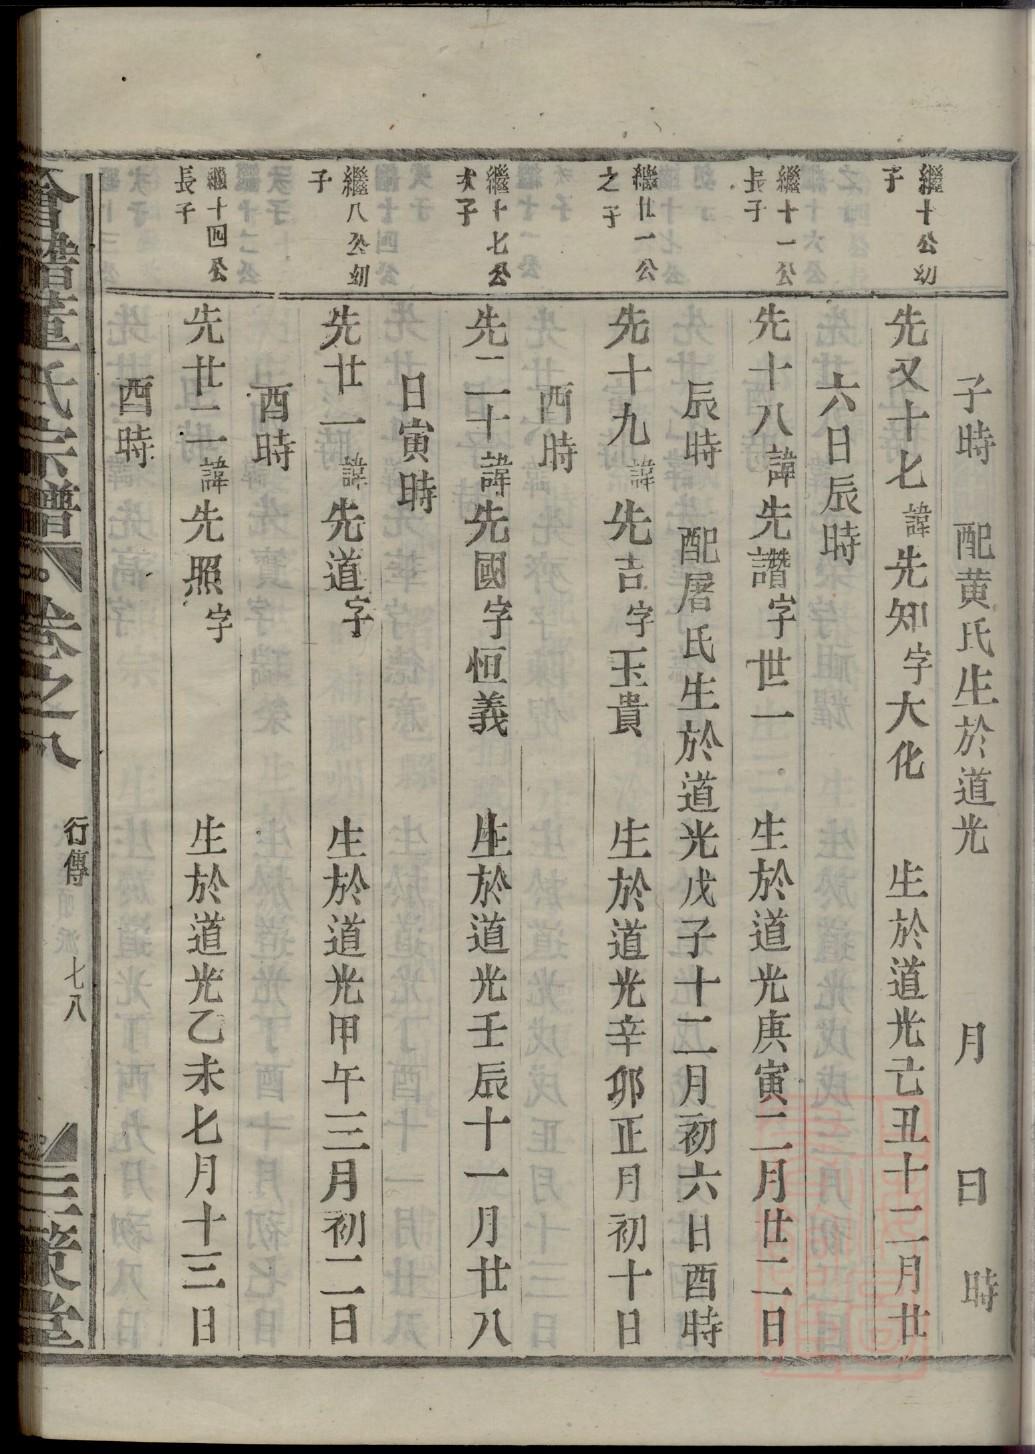 子時　配黄氏生於道光　月　日　時
繼十公幼
子
先又十七諱先知字大化　生於道光己丑十二月廿
六日辰時
繼十一公
長子
先十八諱先讚字世一　生於道光庚寅二月廿二日
辰時　配屠氏生於道光戊子十二月初六日酉時
繼廿一公
之子
先十九諱先吉字玉貴　生於道光辛卯正月初十日
酉時
繼十七公
次子
先二十諱先國字恒義　生於道光壬辰十一月廿八
日寅時
繼八公幼
子
先廿一諱先道字　生於道光甲午三月初二日
酉時
繼十四公
長子
先廿二諱先照字　生於道光乙未七月十三日
酉時
會譜童氏宗譜　卷之八　行傳　七八　三策堂